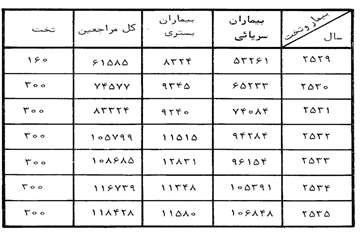 بیمار و تخت سال بیماران سرپائی بیماران بستری کل مراجعین تخت
۲۵۲۹ ۵۳۲۶۱ ۸۳۲۴ ۶۱۵۸۵ ۱۶۰
۲۵۳۰ ۶۵۲۳۳ ۹۳۴۵ ۷۴۵۷۷ ۳۰۰
۲۵۳۱ ۷۴۰۸۴ ۹۲۴۰ ۸۳۳۲۴ ۳۰۰
۲۵۳۲ ۹۴۲۸۴ ۱۱۵۱۵ ۱۰۵۷۹۹ ۳۰۰
۲۵۳۳ ۹۶۱۵۴ ۱۲۸۳۱ ۱۰۸۶۸۵ ۳۰۰
۲۵۳۴ ۱۰۵۳۹۱ ۱۱۳۴۸ ۱۱۶۷۳۹ ۳۰۰
۲۵۳۵ ۱۰۶۸۴۸ ۱۱۵۸۰ ۱۱۸۴۲۸ ۳۰۰